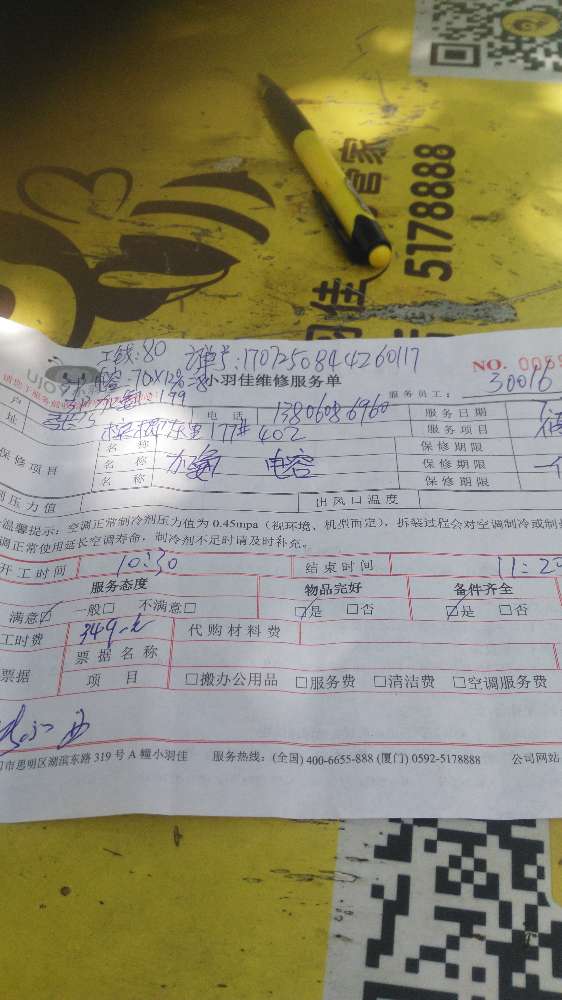 管家
5178888
羽佳
工钱:80 订单号:1707250844260117
NO. 005
UJO
小羽佳维修服务单
服务员工: 30016
户
电话 13806086960 服务日期
址 177# 402 服务项目
保修项目
名称 保修期限
名称 加氟 电容 保修期限
保修期限
压力值 出风口温度
温馨提示：空调正常制冷剂压力值为 0.45mpa（视环境、机型而定），拆装过程会对空调制冷或制
调正常使用延长空调寿命，制冷剂不足时请及时补充。
开工时间 10:30 结束时间 11:2
服务态度 物品完好 备件齐全
满意☑ 一般□ 不满意□ ☑是 □否 ☑是 □否
工时费 349元 代购材料费
票据
票据名称
项目 □搬办公用品 □服务费 □清洁费 □空调服务费
门市思明区湖滨东路 319 号 A 幢小羽佳 服务热线：(全国) 400-6655-888 (厦门) 0592-5178888 公司网站